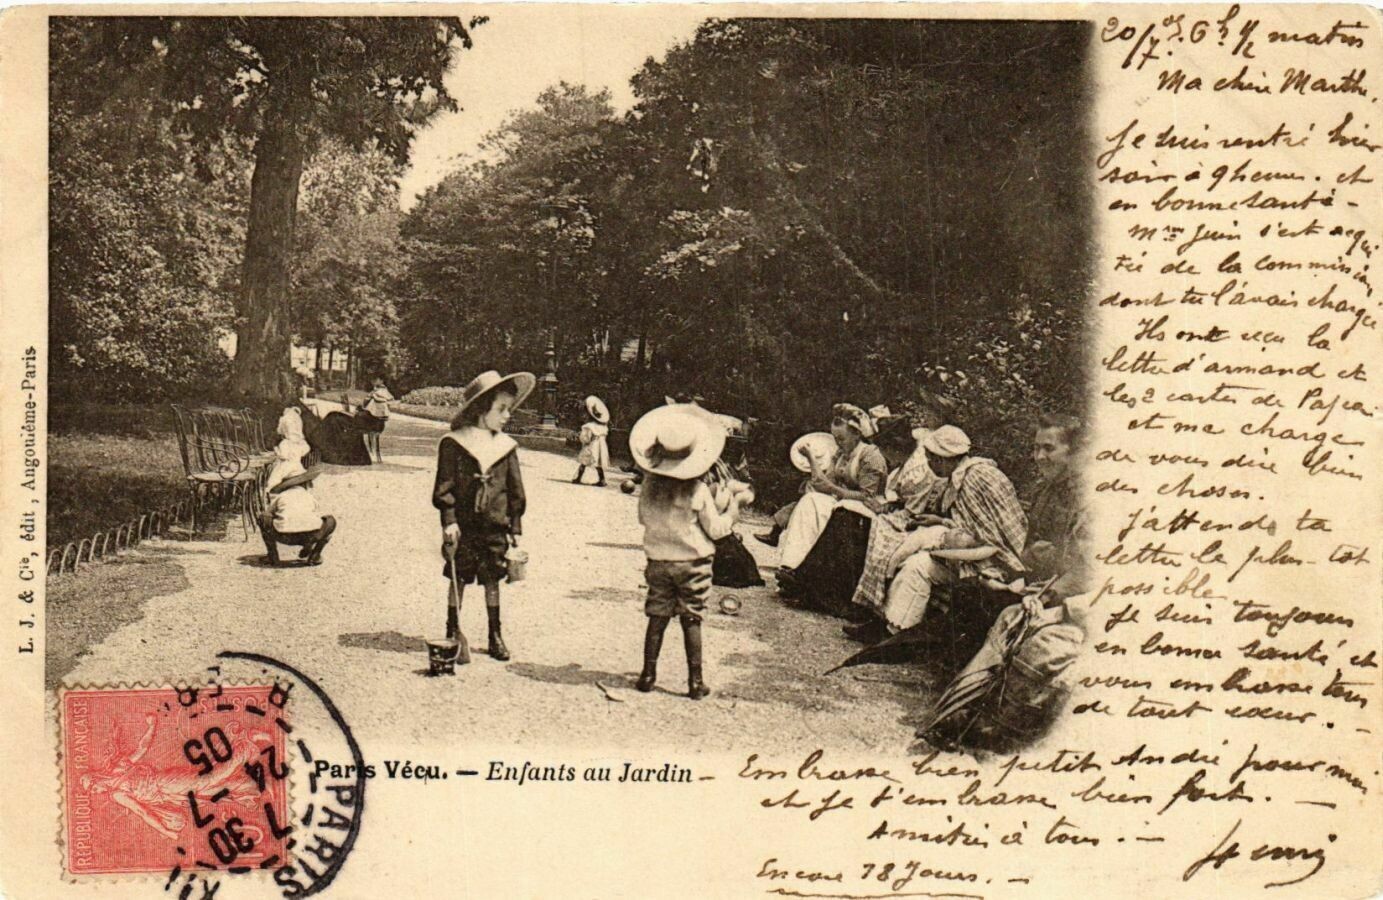 20/7. 05. 6h 1/2 matin
Ma chère Marthe,
Je suis rentré hier
soir à 9 heures. et
en bonne santé -
Mme Juin s'est acqui
tée de la commission
dont tu l'avais chargée
Ils ont reçu la
lettre d'armand et
les 2 cartes de Papa
et me charge
de vous dire bien
des choses.
J'attends ta
lettre le plus-tôt
possible
Je suis toujours
en bonne santé et
vous embrasse tous
de tout cœur. -
Embrasse bien petit André pour moi
et je t'embrasse bien fort. -
Amitiés à tous. -
Henri
Encore 78 Jours. -
Paris Vécu. — Enfants au Jardin -
L. J. & Cie, édit, Angoulème-Paris
REPUBLIQUE FRANÇAISE
10
PARIS
7 30
24 - 7
05